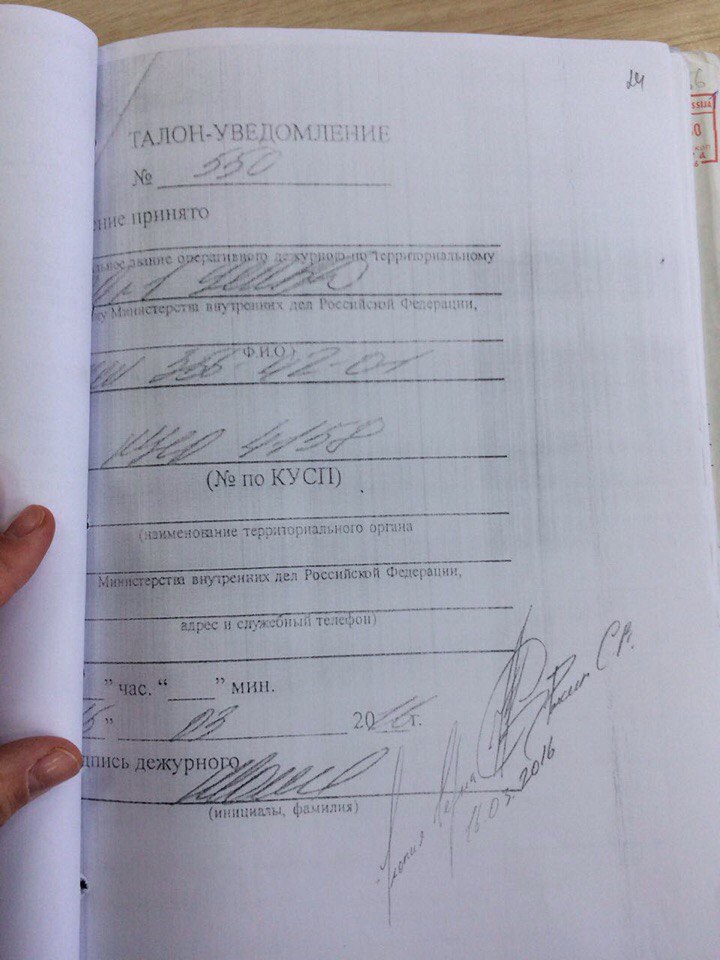 24
ТАЛОН-УВЕДОМЛЕНИЕ
№ 550
ение принято
льное звание оперативного дежурного по территориальному
ну Министерства внутренних дел Российской Федерации,
Ф.И.О.)
355-42-01
КУСП 4158
(№ по КУСП)
(наименование территориального органа
Министерства внутренних дел Российской Федерации,
адрес и служебный телефон)
” час. “____” мин.
” 03 2016г.
дпись дежурного
(инициалы, фамилия)
Копия верна
18.03.2016